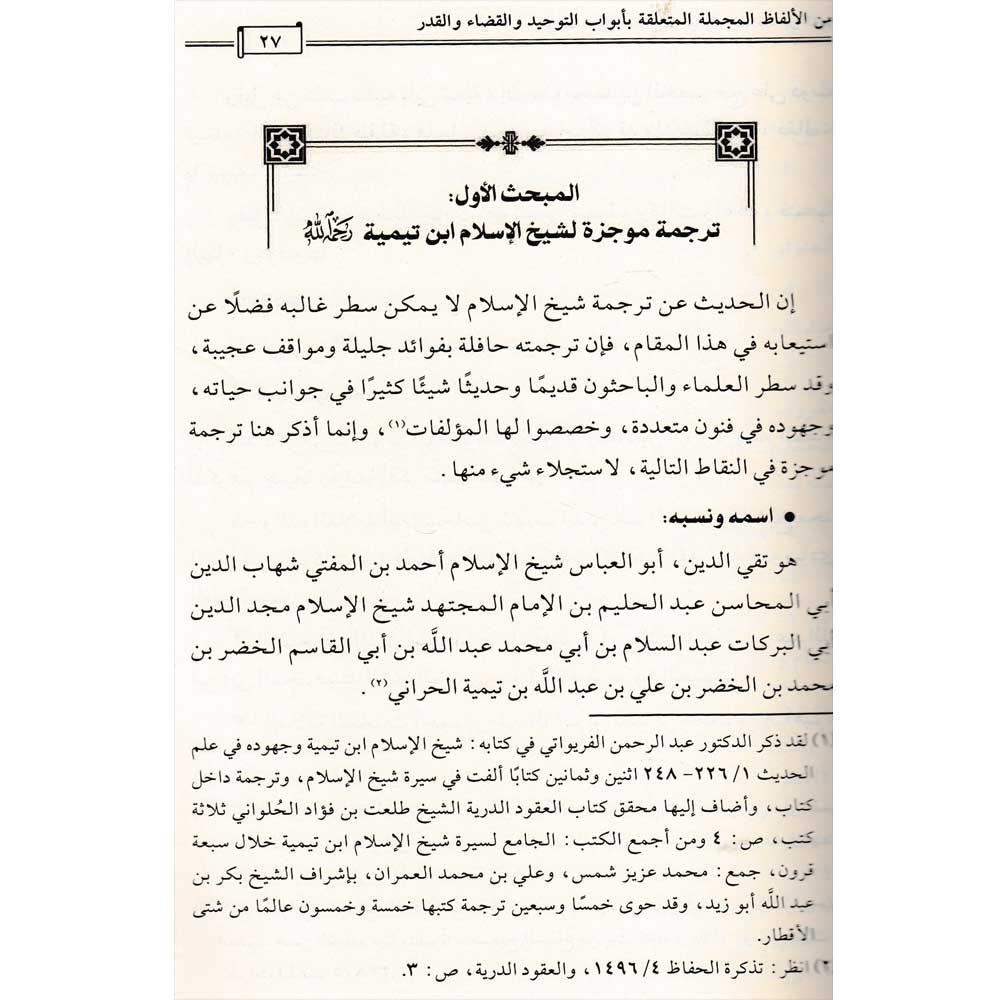 من الألفاظ المجملة المتعلقة بأبواب التوحيد والقضاء والقدر
٢٧
المبحث الأول:
ترجمة موجزة لشيخ الإسلام ابن تيمية رحمه الله
إن الحديث عن ترجمة شيخ الإسلام لا يمكن سطر غالبه فضلًا عن
استيعابه في هذا المقام، فإن ترجمته حافلة بفوائد جليلة ومواقف عجيبة،
وقد سطر العلماء والباحثون قديمًا وحديثًا شيئًا كثيرًا في جوانب حياته،
وجهوده في فنون متعددة، وخصصوا لها المؤلفات(١)، وإنما أذكر هنا ترجمة
موجزة في النقاط التالية، لاستجلاء شيء منها.
• اسمه ونسبه:
هو تقي الدين، أبو العباس شيخ الإسلام أحمد بن المفتي شهاب الدين
أبي المحاسن عبد الحليم بن الإمام المجتهد شيخ الإسلام مجد الدين
أبي البركات عبد السلام بن أبي محمد عبد اللَّه بن أبي القاسم الخضر بن
محمد بن الخضر بن علي بن عبد اللَّه بن تيمية الحراني(٢).
(١) لقد ذكر الدكتور عبد الرحمن الفريواتي في كتابه: شيخ الإسلام ابن تيمية وجهوده في علم
الحديث ١/ ٢٢٦- ٢٤٨ اثنين وثمانين كتابًا ألفت في سيرة شيخ الإسلام، وترجمة داخل
كتاب، وأضاف إليها محقق كتاب العقود الدرية الشيخ طلعت بن فؤاد الحُلواني ثلاثة
كتب، ص: ٤ ومن أجمع الكتب: الجامع لسيرة شيخ الإسلام ابن تيمية خلال سبعة
قرون، جمع: محمد عزيز شمس، وعلي بن محمد العمران، بإشراف الشيخ بكر بن
عبد اللَّه أبو زيد، وقد حوى خمسًا وسبعين ترجمة كتبها خمسة وخمسون عالمًا من شتى
الأقطار.
(٢) انظر: تذكرة الحفاظ ٤/ ١٤٩٦، والعقود الدرية، ص: ٣.